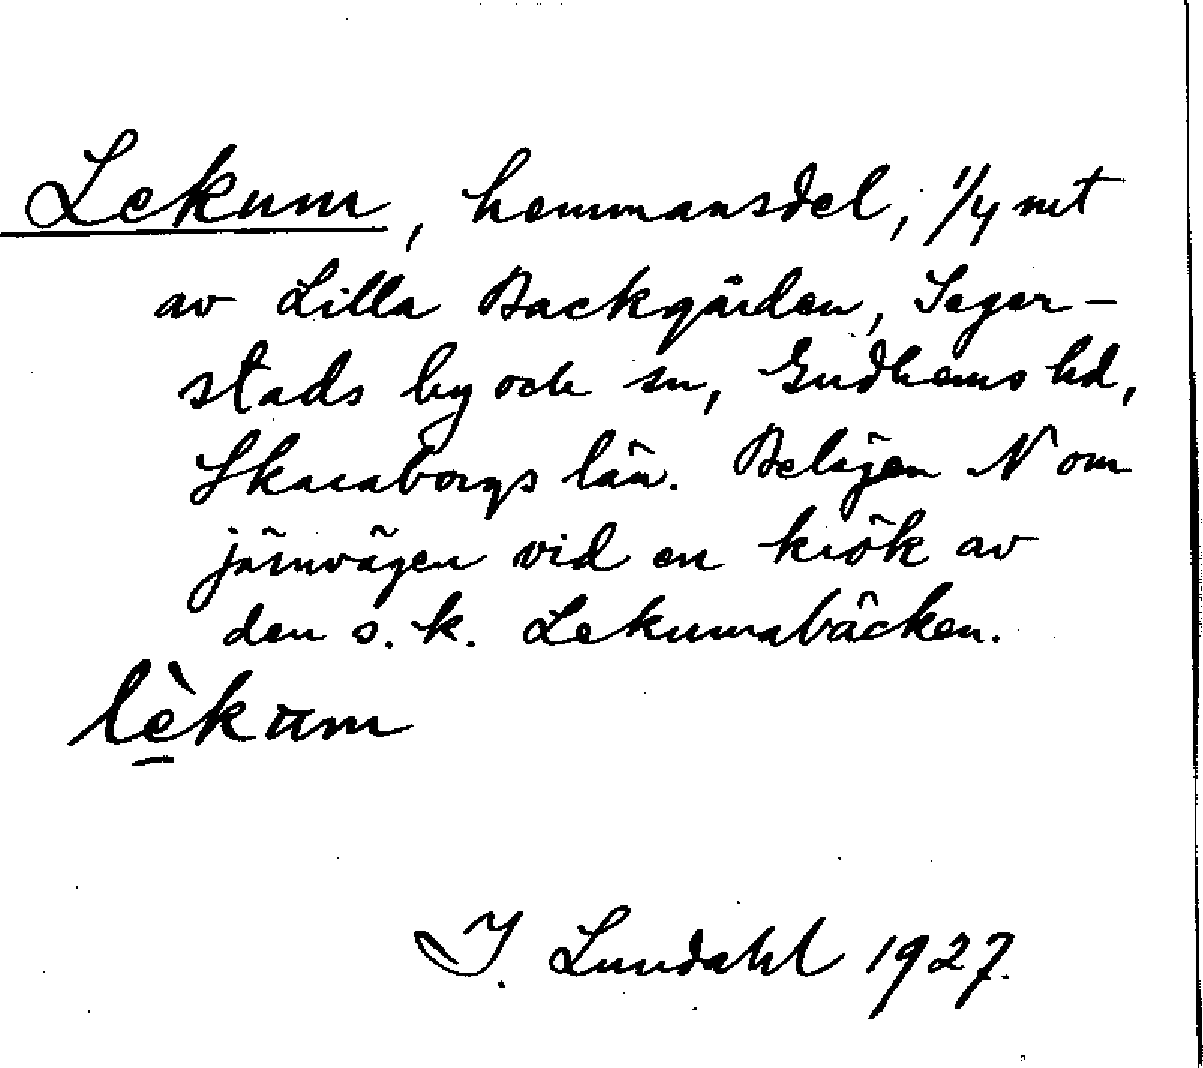 Lekum, hemmansdel, 1/4 mt
av Lilla Backgården, Seger-
stads by och sn, Gudhems hd,
Skaraborgs län. Belägen N om
järnvägen vid en krök av
den s.k. Lekumabäcken.
lèkum
I. Lundahl 1927.